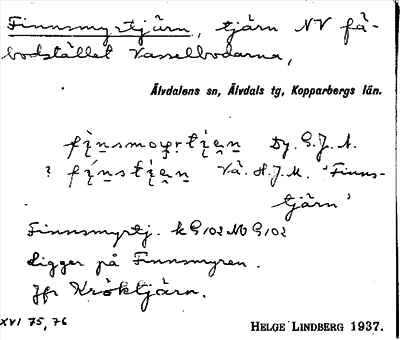 Finnsmyrtjärn, tjärn NV fä-
bodstället Vasselbodarna,
Älvdalens sn, Älvdals tg, Kopparbergs län.
Dy. G.J.A.
? Vå. H.J.M. 'Finns-
tjärn'
Finnsmyrtj. k G 102 NO G 102
Ligger på Finnsmyren.
Jfr Kröktjärn.
XVI 75, 76
HELGE LINDBERG 1937.